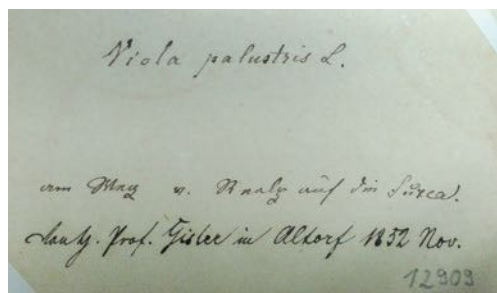 Viola palustris L.
am Weg v. Realp auf die Furca.
Prof. Gisler in Altorf 1852 Nov.
12909